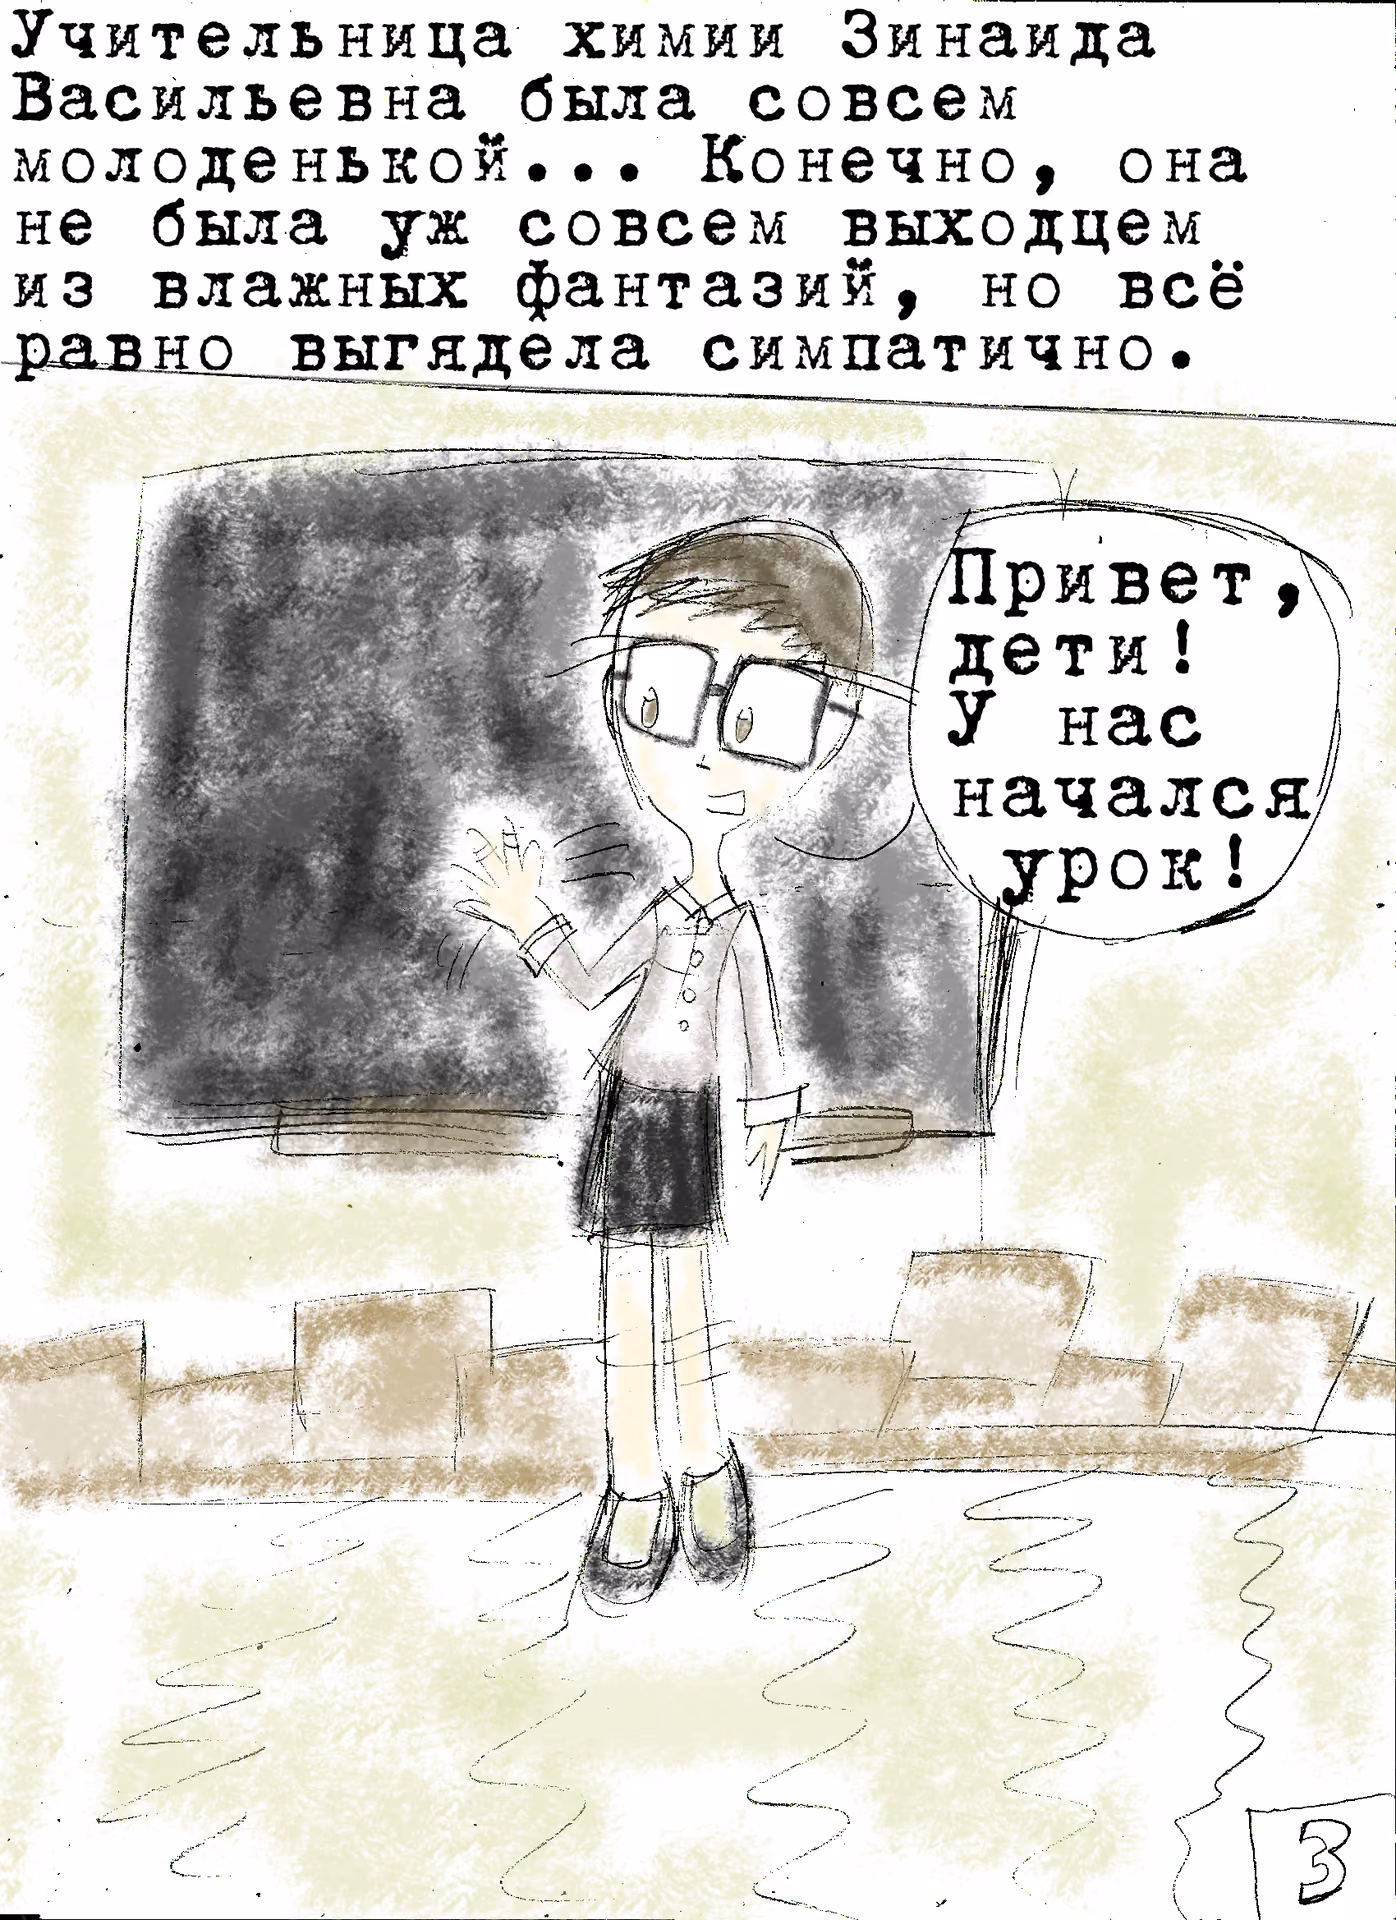 Учительница химии Зинаида
Васильевна была совсем
молоденькой... Конечно, она
не была уж совсем выходцем
из влажных фантазий, но всё
равно выгядела симпатично.
Привет,
дети!
У нас
начался
урок!
3